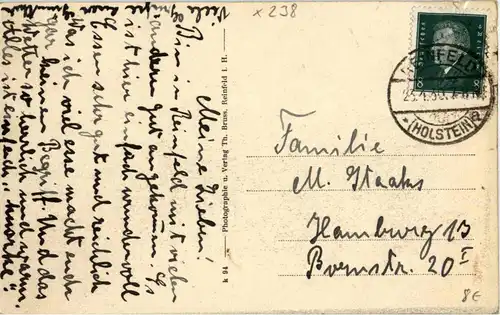 Viele Grüße
Meine Lieben!
Bin in Reinfeld mit vielen
andern gut angekommen. Es
ist hier einfach wundervoll
Essen sehr gut und reichlich
Was ich viel esse macht euch
gar keinen Begriff. Und das
Wetter so herrlich und warm.
Alles ist einfach "Marke"
k 94 — Photographie u. Verlag Th. Bruss, Reinfeld i. H.
x 238
REINFELD
(HOLSTEIN)
Familie
M. Staaks
Hamburg 13
Bornstr. 20 I
8€